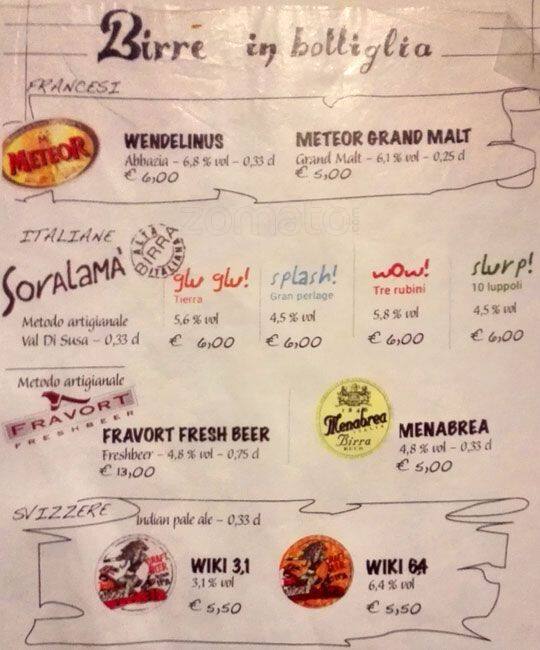 Birre in bottiglia
FRANCESI
METEOR
WENDELINUS
Abbazia – 6,8 % vol – 0,33 d
€ 6,00
METEOR GRAND MALT
Grand Malt – 6,1 % vol – 0,25 d
€ 5,00
zomato
ITALIANE
SORALAMÀ
ALTA BIRRA ITALIANA
Metodo artigianale
Val Di Susa – 0,33 d
glu glu!
Tierra
5,6 % vol
€ 6,00
splash!
Gran perlage
4,5 % vol
€ 6,00
wow!
Tre rubini
5,8 % vol
€ 6,00
slurp!
10 luppoli
4,5 % vol
€ 6,00
Metodo artigianale
FRAVORT
FRESHBEER
FRAVORT FRESH BEER
Freshbeer – 4,8 % vol – 0,75 d
€ 13,00
1846
Menabrea
ITALIA
Birra
BEER
MENABREA
4,8 % vol – 0,33 d
€ 5,00
SVIZZERE
Indian pale ale – 0,33 d
CRAFT
BEER
WIKI 3,1
3,1 % vol
€ 5,50
CRAFT
BEER
WIKI 6,4
6,4 % vol
€ 5,50